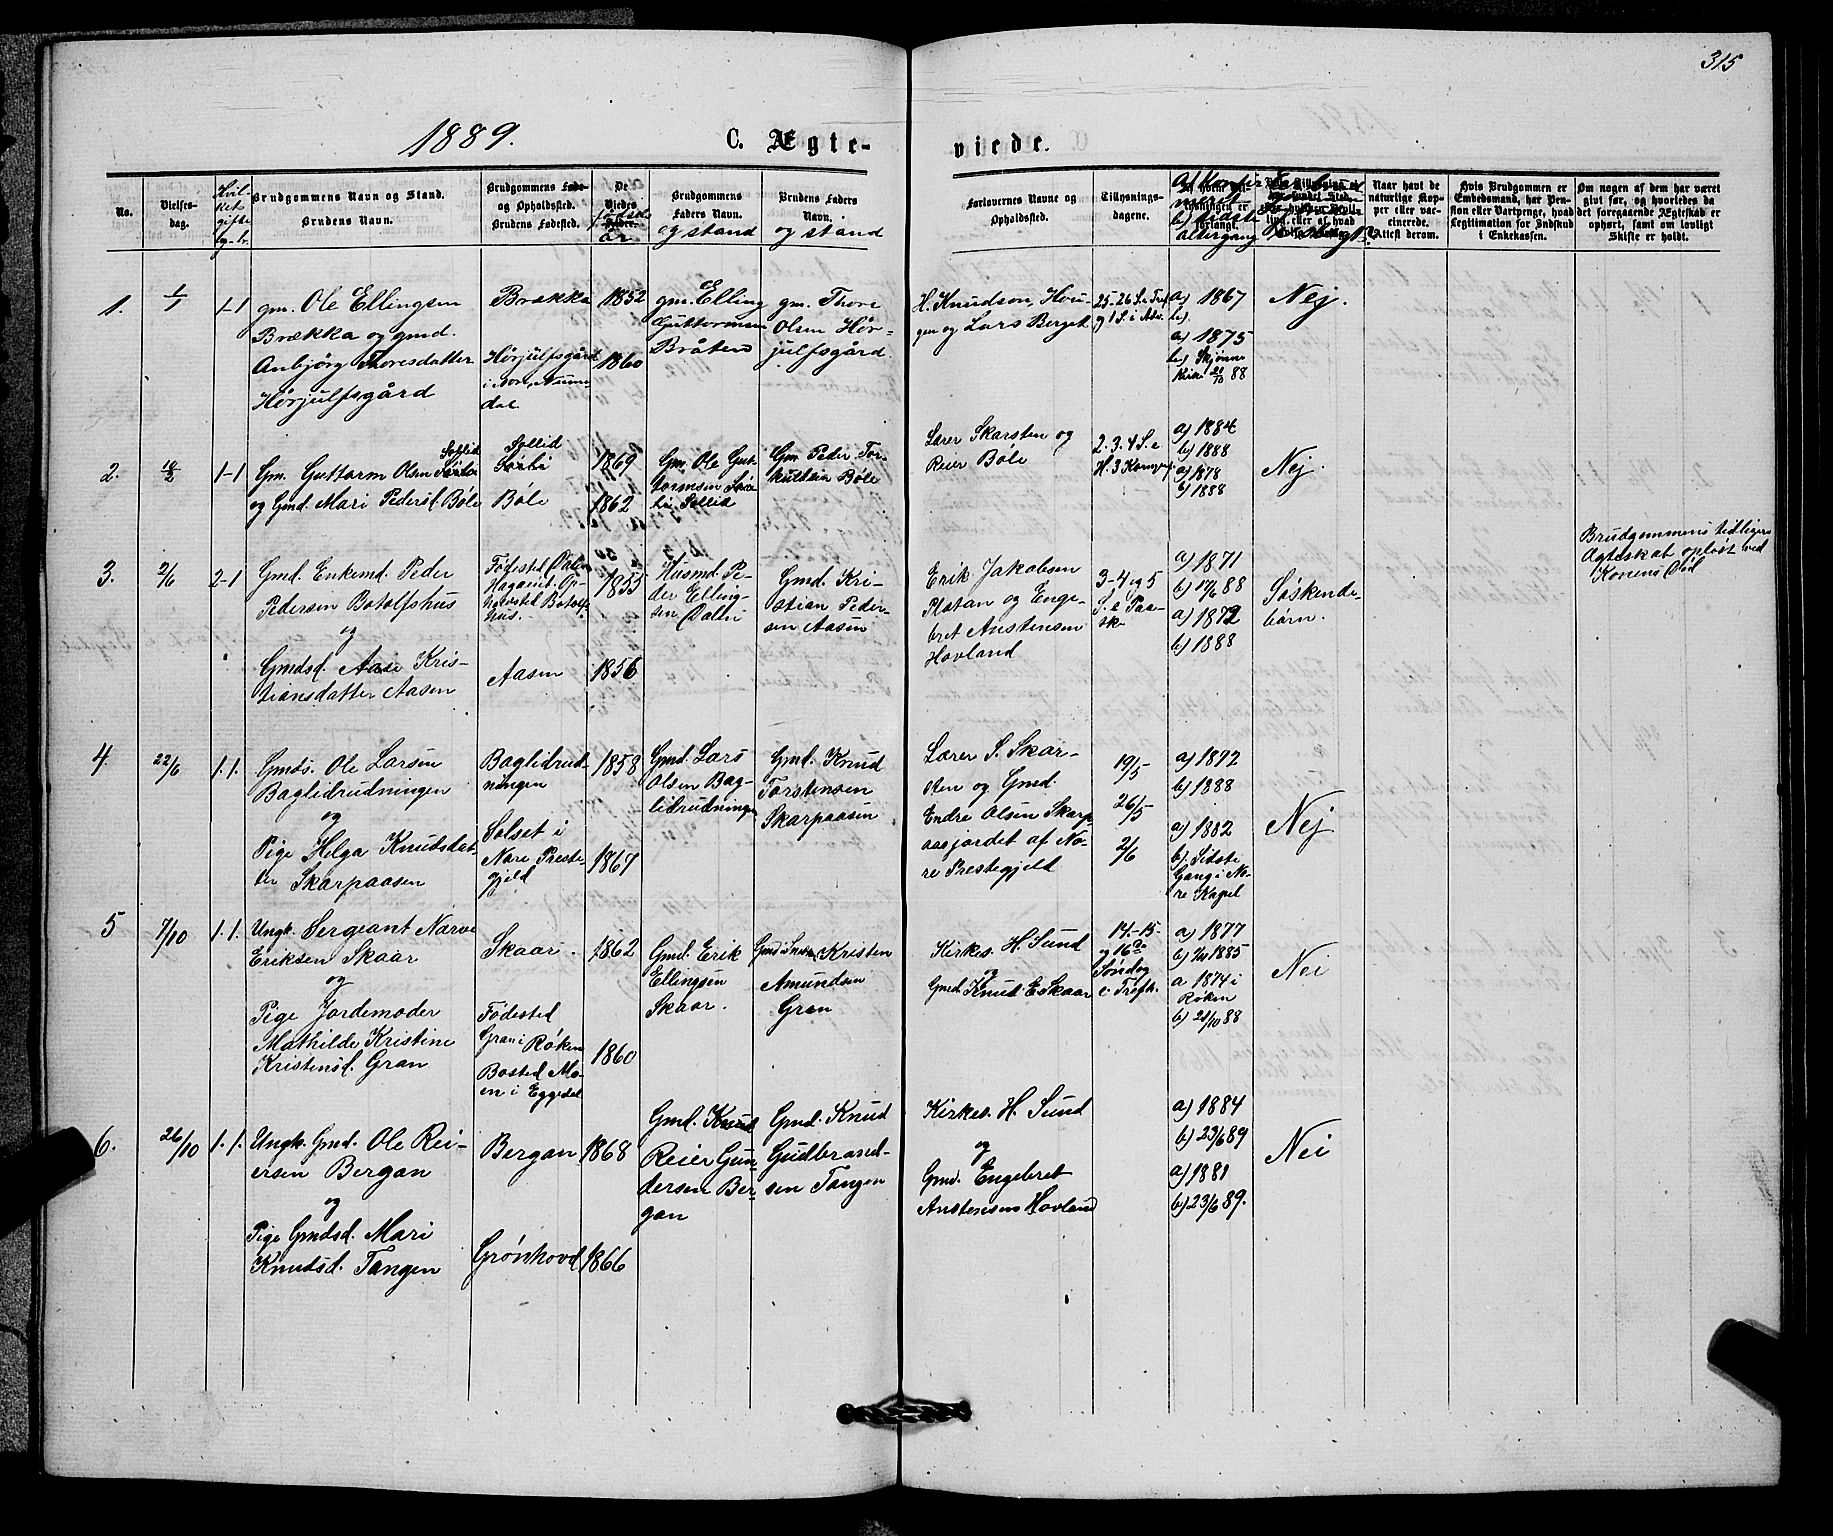 315
1889.
C. Ægte-
viede.
No.
Vielses-
dag.
Hvil-
ket
gifte
Brudgommens Navn og Stand.
Brudens Navn.
Brudgommens Føde-
og Opholdssted.
Brudens Fødested.
De
Viedes
Fødsels
år
Brudgommens
Faders Navn.
og stand
Brudens Faders
Navn.
og stand
Forlovernes Navne og
Opholdssted.
Tillysnings-
dagene.
altergang
Naar havt de
naturlige Kop-
per eller vac-
cinerede.
Attest derom.
Hvis Brudgommen er
Embedsmand, har Pen-
sion eller Vartpenge, hvad
Legitimation for Indskud
i Enkekassen.
Om nogen af dem har været
givt før, og hvorledes da
det foregaaende Ægteskab er
ophørt, samt om lovligt
Skifte er holdt.
1.
1/1
1-1
gm. Ole Ellingsen
Brække og gmd.
Anbjörg Thoresdatter
Hörjulfsgård
Brække
Hörjulfsgård
i Nore, Numme-
dal.
1852
1860
gm. Elling
Guttormsen
Bråten
gm. Thore
Olsen Hör-
julfsgård.
H. Knudson, Hou-
gen og Lars Berget
25-26 S. e Tref
og 1 S. i Adv.
a) 1867
b)
a) 1875
b) Skjønne
Kirke 21/10 88
Nej.
2.
18/2
1-1
Sollid
Gm. Guttorm Olsen
og Gmd. Mari Pedersd. Böle
Sollid
Böle
1869
1862
Gm. Ole Gut-
tormsen
Sollid
Gm. Peder Tor-
Böle
Lærer Skarsten og
Reier Böle
2. 3. 4 S. e
H. 3 Kong.
a) 1884
b) 1888
a) 1878
b) 1888
Nej.
3.
2/6
2-1
Gmd. Enkemd. Peder
Pedersen Botolfshus
og
Gmdsd. Aase Kris-
tiansdatter Aasen
Fødested Dalen
Hus.
Aasen
1855
1856
Husmd. Pe-
der Elling-
sen Dalen
Gmd. Kri-
stian Peder-
sen Aasen
Erik Jakobsen
Platan og Enge-
bret Anstensen
Hovland
3-4 og 5
S. e Paa-
sk
a) 1871
b) 17/6 88
a) 1872
b) 1888
Søskende-
børn.
Brudgommens tidligere
Ægteskab opløst ved
Konens Död
4.
22/6
1.1.
Gmds. Ole Larsen
Baglidrudningen
og
Pige Helga Knudsdat-
ter Skarpaasen
Baglidrud-
ningen
Solset i
Nore Preste-
gjeld
1858
1867
Gmd. Lars
Olsen Bag-
lidrudningen
Gmd. Knud
Torstensen
Skarpaasen
Lærer S. Skar-
sten og Gmd.
Endre Olsen Skarp
aasjordet af No-
re Prestegjeld
19/5
26/5
2/6
a) 1872
b) 1888
a) 1882
b) Sidste
Gang i No-
re Kapel
Nej
5
7/10
1.1.
Ungk. Sergeant Narve
Eriksen Skaar
og
Pige Jordemoder
Mathilde Kristine
Kristensd. Gran
Skaar.
Fødested
Gran i Røken
Bosted Mo-
en i Eggedal
1862
1860
Gmd. Erik
Ellingsen
Skaar.
Kristen
Amundsen
Gran
Kirkes. H. Sund
og
Gmd. Knud E. Skaar
14.-15-
og 16de
Søndag
e Trefh.
a) 1877
b) 1885
a 1874 i
Røken
b) 21/10 88
Nei
6.
26/10
1.1.
Ungk. Gmd. Ole Rei-
ersen Bergan
og
Pige Gmdsd. Mari
Knudsd. Tangen
Bergan
Grønhovd
1868
1866
Gmd. Knud
Reier Gun
dersen Ber-
gan
Gmd. Knud
Gudbrand-
sen Tangen
Kirkes. H. Sund
og
Gmd. Engebret
Anstensen Hovland
a) 1884
b) 23/6 89
a) 1881
b) 23/6 89.
Nei